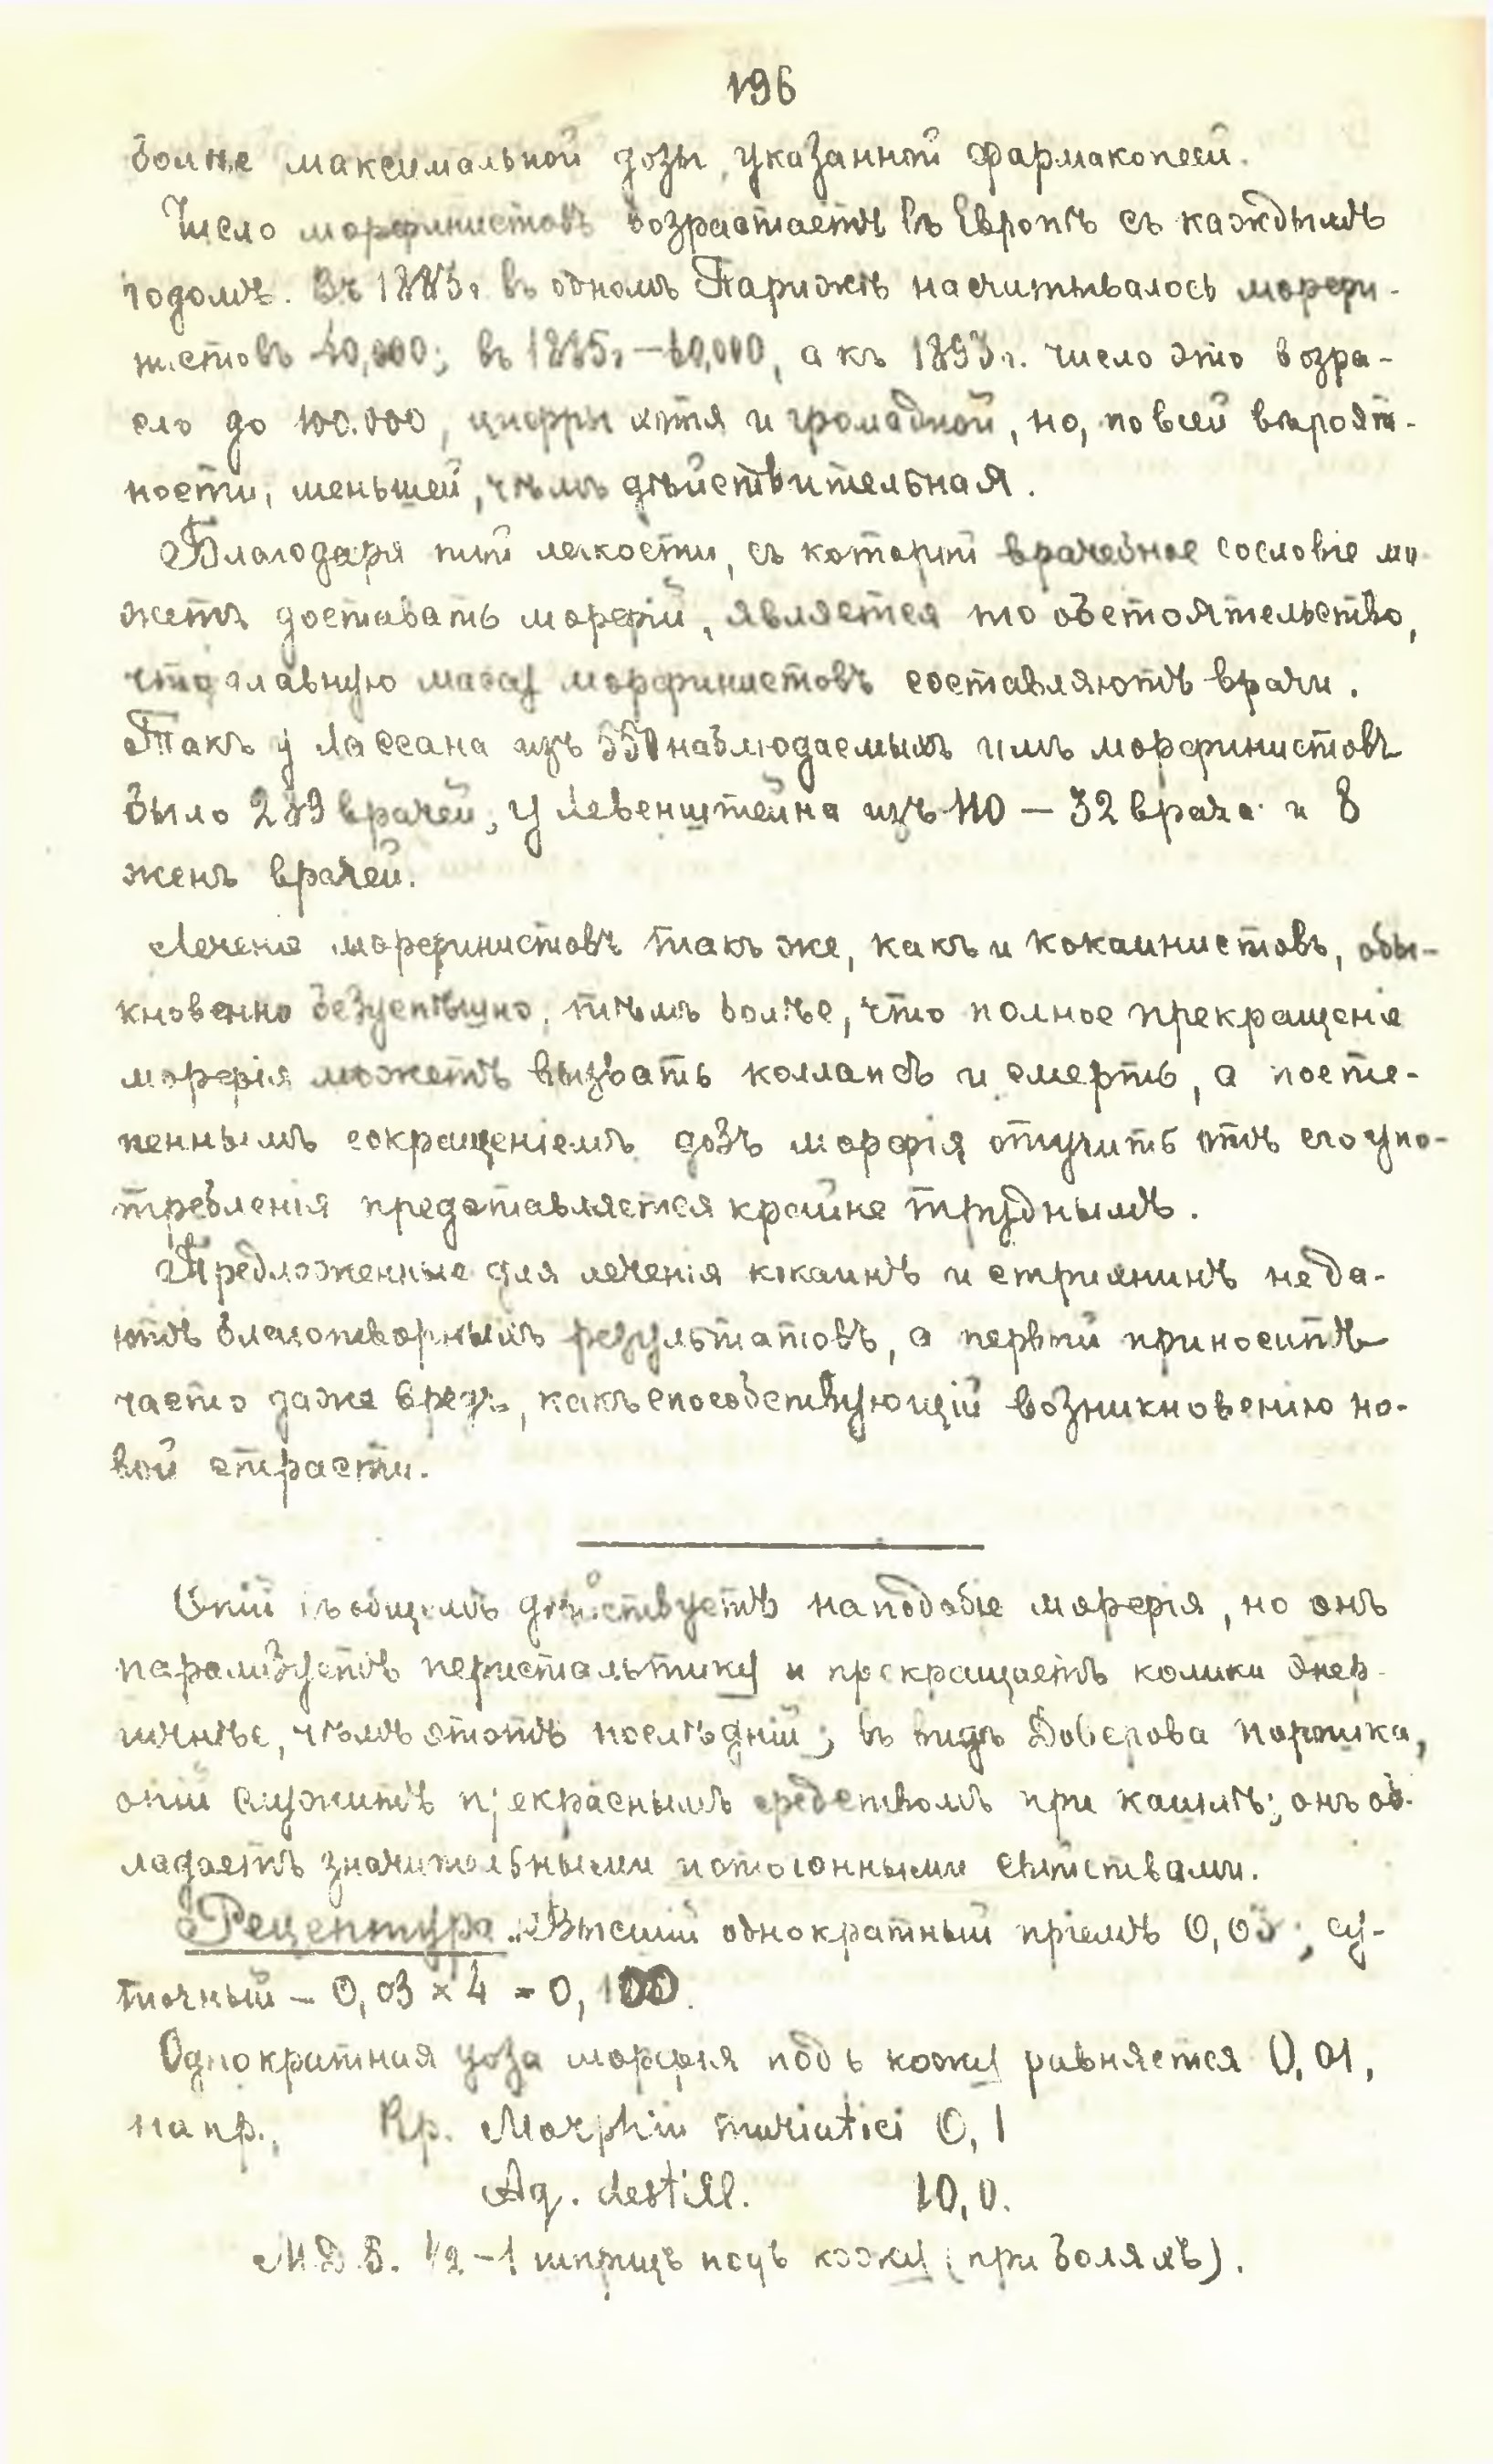 196
болѣе максимальной дозы, указанной фармакопеей.
Число морфинистовъ возрастаетъ въ Европѣ съ каждымъ
годомъ. Въ 1883г. въ одномъ Парижѣ насчитывалось морфи-
нистовъ 40,000; въ 1885г. – 60,000, а къ 1893г. число это возра-
сло до 100.000, цифры хотя и громадной, но, по всей вѣроят-
ности, меньшей, чѣмъ дѣйствительная.
Благодаря той легкости, съ которой врачебное сословіе мо-
жетъ доставать морфій, является то обстоятельство,
что главную массу морфинистовъ составляютъ врачи.
Такъ у Лассана изъ 550 наблюдаемыхъ имъ морфинистовъ
было 289 врачей, у Левенштейна изъ 110 – 32 врача и 8
женъ врачей.
Леченіе морфинистовъ такъ же, какъ и кокаинистовъ, обы-
кновенно безуспѣшно, тѣмъ болѣе, что полное прекращеніе
морфія можетъ вызвать коллапсъ и смерть, а посте-
пеннымъ сокращеніемъ дозъ морфія отучить отъ его упо-
требленія представляется крайне труднымъ.
Предложенные для леченія кокаинъ и стрихнинъ не да-
ютъ благотворныхъ результатовъ, а первый приноситъ
часто даже вредъ, какъ способствующій возникновенію но-
вой страсти.
Опій въ общемъ дѣйствуетъ наподобіе морфія, но онъ
парализуетъ перистальтику и прекращаетъ колики энер-
гичнѣе, чѣмъ этотъ послѣдній; въ видѣ Доверова порошка,
опій служитъ прекраснымъ средствомъ при кашлѣ; онъ об-
ладаетъ значительными потогонными свойствами.
Рецептура. Высшій однократный пріемъ 0,03; су-
точный – 0,03 × 4 = 0,1
Однократная доза морфія подъ кожу равняется 0,01,
напр., Rp. Morphii muriatici 0,1
Aq. destill. 10,0.
M.D.S. 1/2 – 1 шприцъ подъ кожу (при боляхъ).